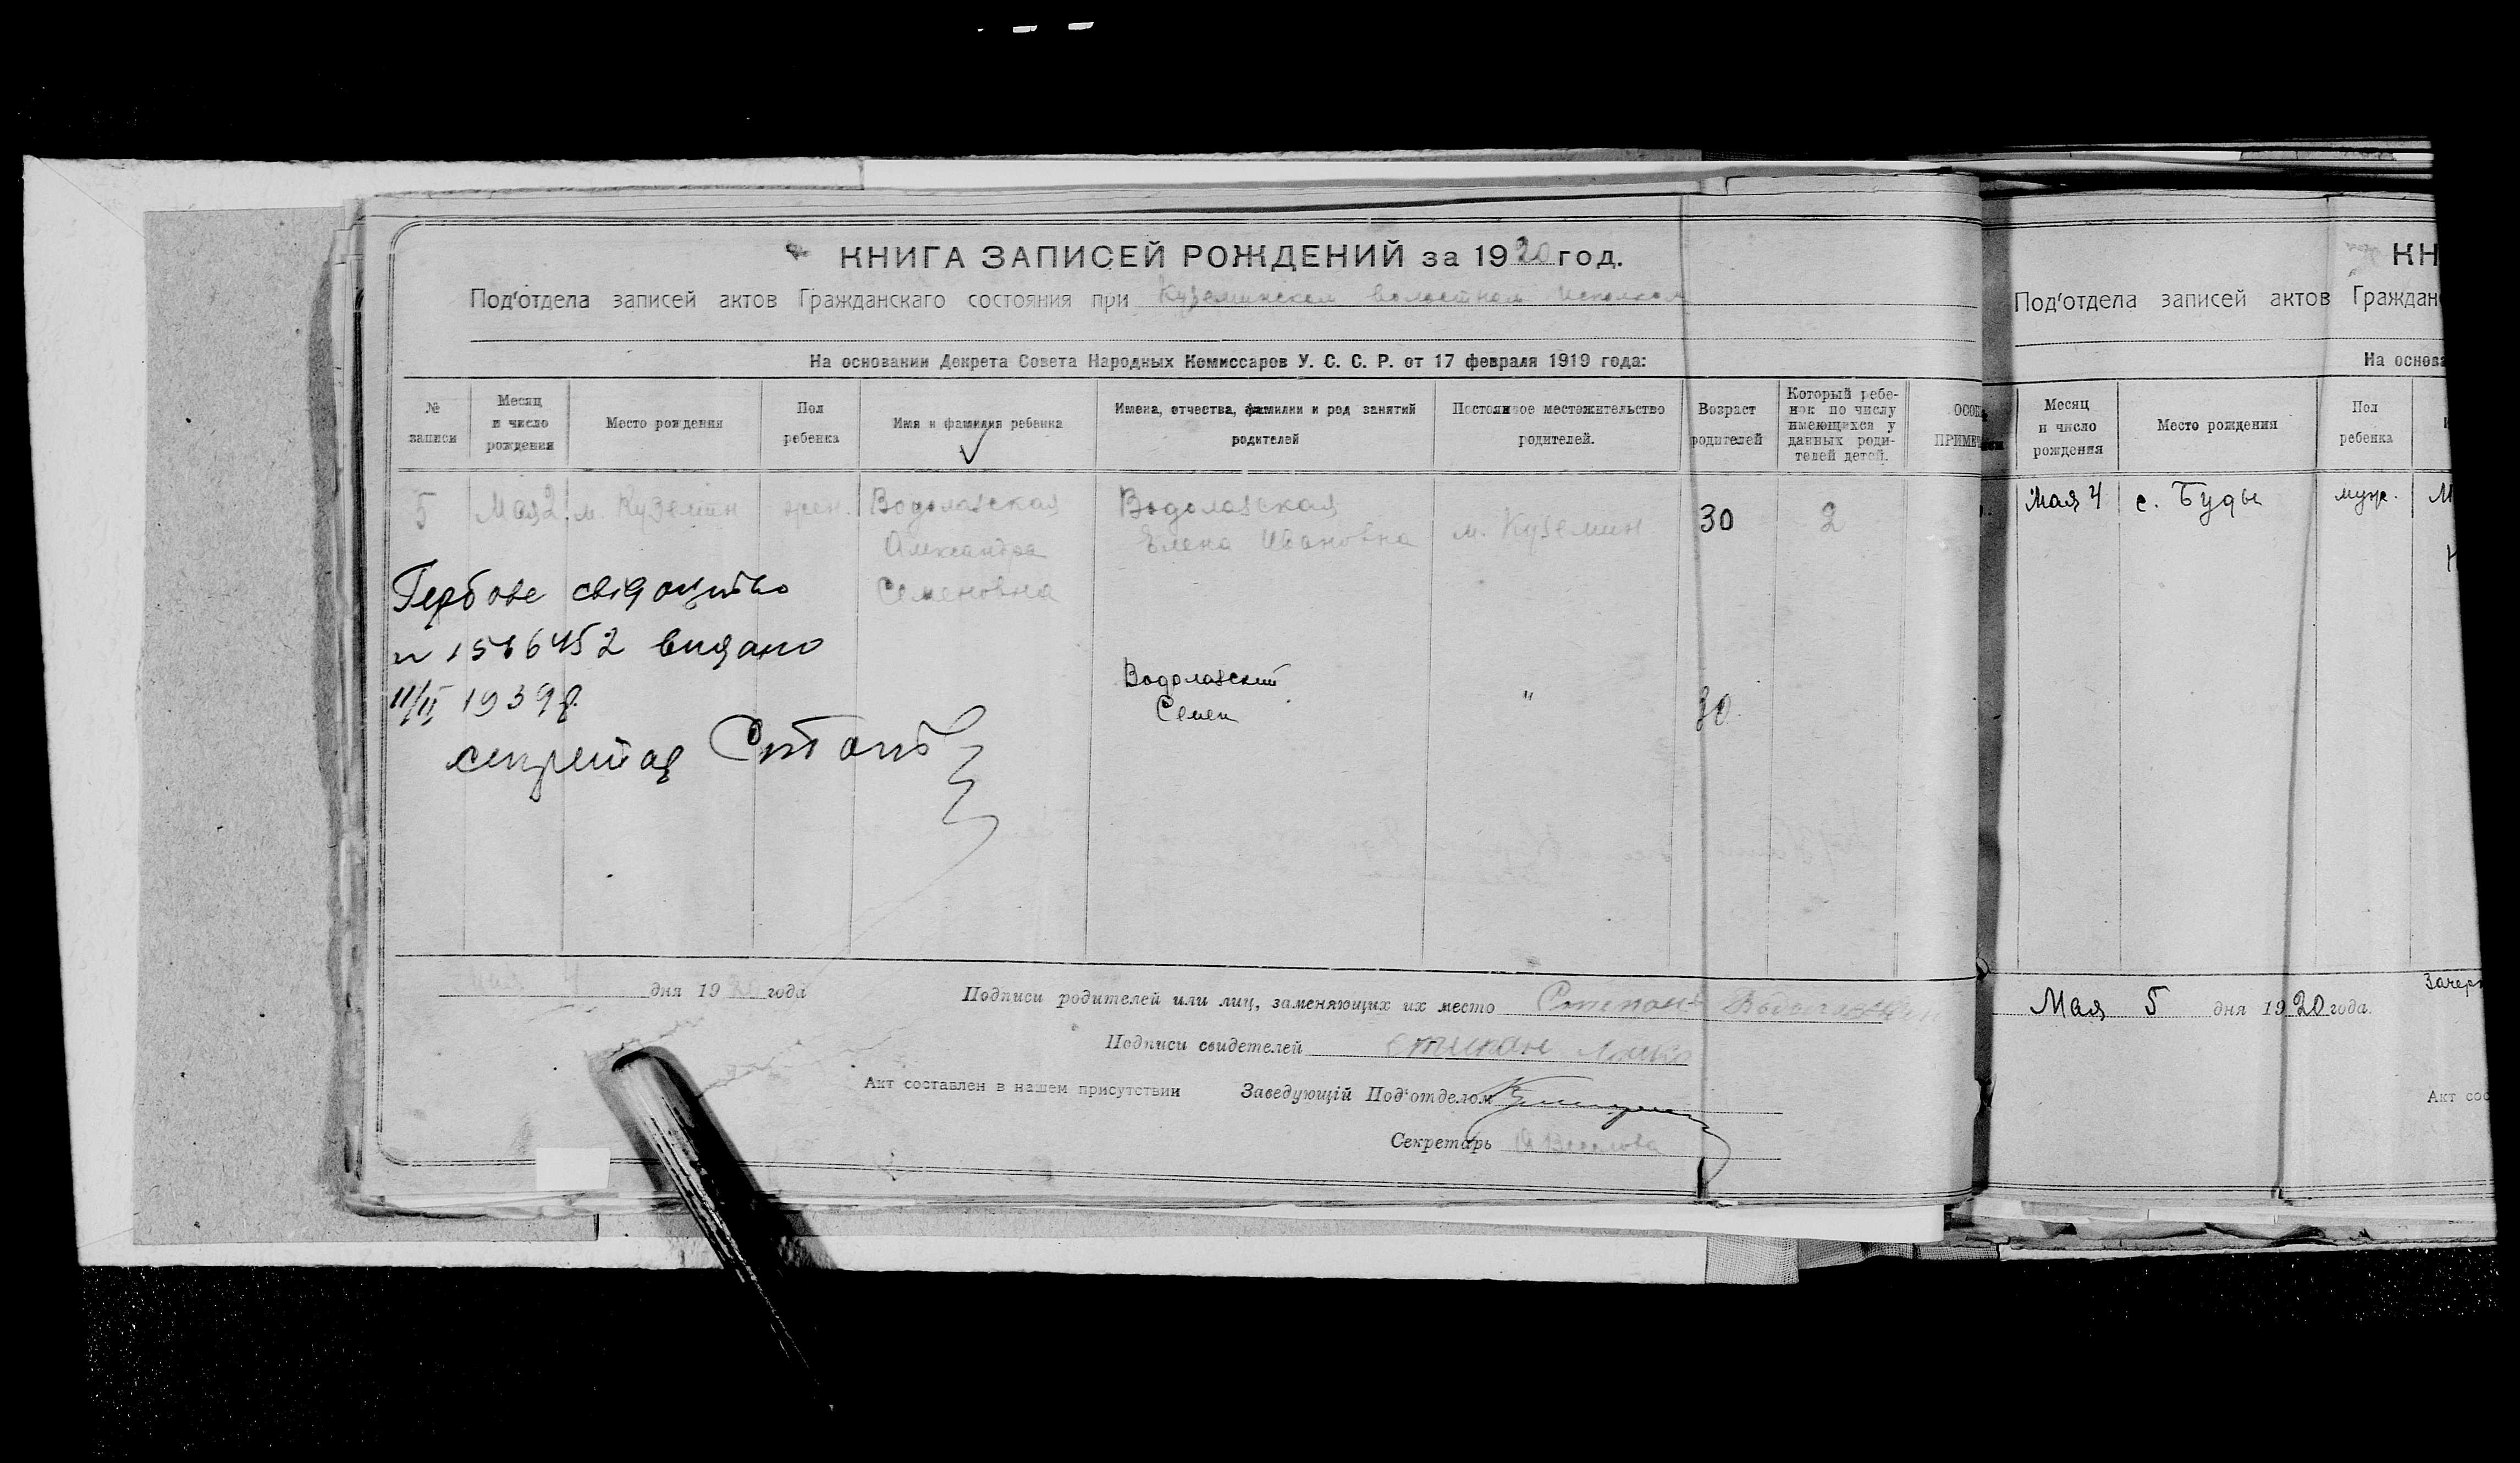 КНИГА ЗАПИСЕЙ РОЖДЕНИЙ за 1920 год.
Под'отдела записей актов Гражданскаго состояния при Куземинском волостном исполком
На основании Декрета Совета Народных Комиссаров У. С. С. Р. от 17 февраля 1919 года:
№ записи
Месяц и число рождения
Место рождения
Пол ребенка
Имя и фамилия ребенка
Имена, отчества, фамилии и род занятий родителей
Постоянное местожительство родителей.
Возраст родителей
Который ребе-
нок по числу
имеющихся у
данных роди-
телей детей.
ОСОБЫ
ПРИМЕЧ
5 Мая 2 м. Куземин жен. Водолазская Водолазская 30 2
Александра Елена Ивановна м. Куземин
Семеновна
Гербове свідоцтво
№ 1566452 видано
11/II 1939 р.
секретар
Водолазский
Семен " 30
мая 4 дня 1920 года
Подписи родителей или лиц, заменяющих их место Степанъ Водолазский
Подписи свидетелей Степан
Акт составлен в нашем присутствии Заведующій Под'отделом
Секретарь
КН
Под'отдела записей актов Граждан
На основа
Месяц и число рождения
Место рождения
Пол ребенка
Мая 4 с. Буды муж.
Мая 5 дня 1920 года.
Акт сос